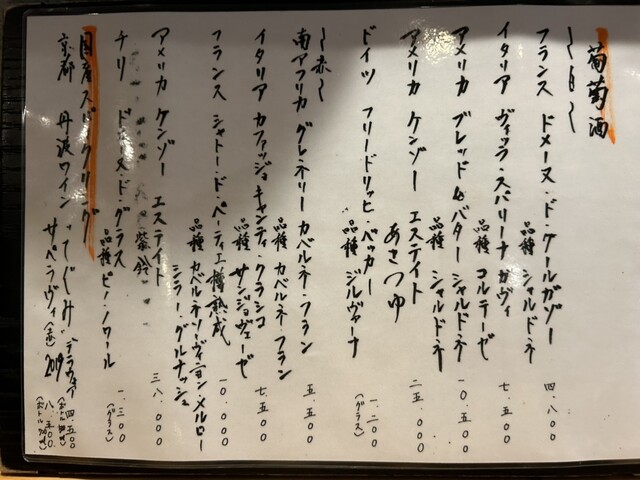 葡萄酒
〜白〜
フランス ドメーヌ・ド・ケールガゾー
品種 シャルドネ 四.八〇〇
イタリア ヴィッラ・スパリーナ ガヴィ
品種 コルテーゼ 七.五〇〇
アメリカ ブレッド&バター シャルドネ
品種 シャルドネ 一〇.五〇〇
アメリカ ケンゾー エステイト
あさつゆ 二五.〇〇〇
ドイツ フリードリッヒ・ベッカー
品種 ジルヴァーナ 一.二〇〇
(グラス)
〜赤〜
南アフリカ グレネリー カベルネ・フラン
品種 カベルネ・フラン 五.五〇〇
イタリア カファッジョ キャンティ・クラシコ
品種 サンジョヴェーゼ 七.五〇〇
フランス シャトー・ド・ペーティエ 樽熟成
品種 カベルネソーヴィニヨン・メルロー
シラー・グルナッシュ 一〇.〇〇〇
アメリカ ケンゾー エステイト
紫鈴 三八.〇〇〇
チリ ドメーヌ・ド・グラス
品種 ピノ・ノワール 一.三〇〇
(グラス)
国産スパークリング
京都 丹波ワイン "てぐみ" デラウェア 四.五〇〇
サペラヴィ(赤) 2019 八.五〇〇